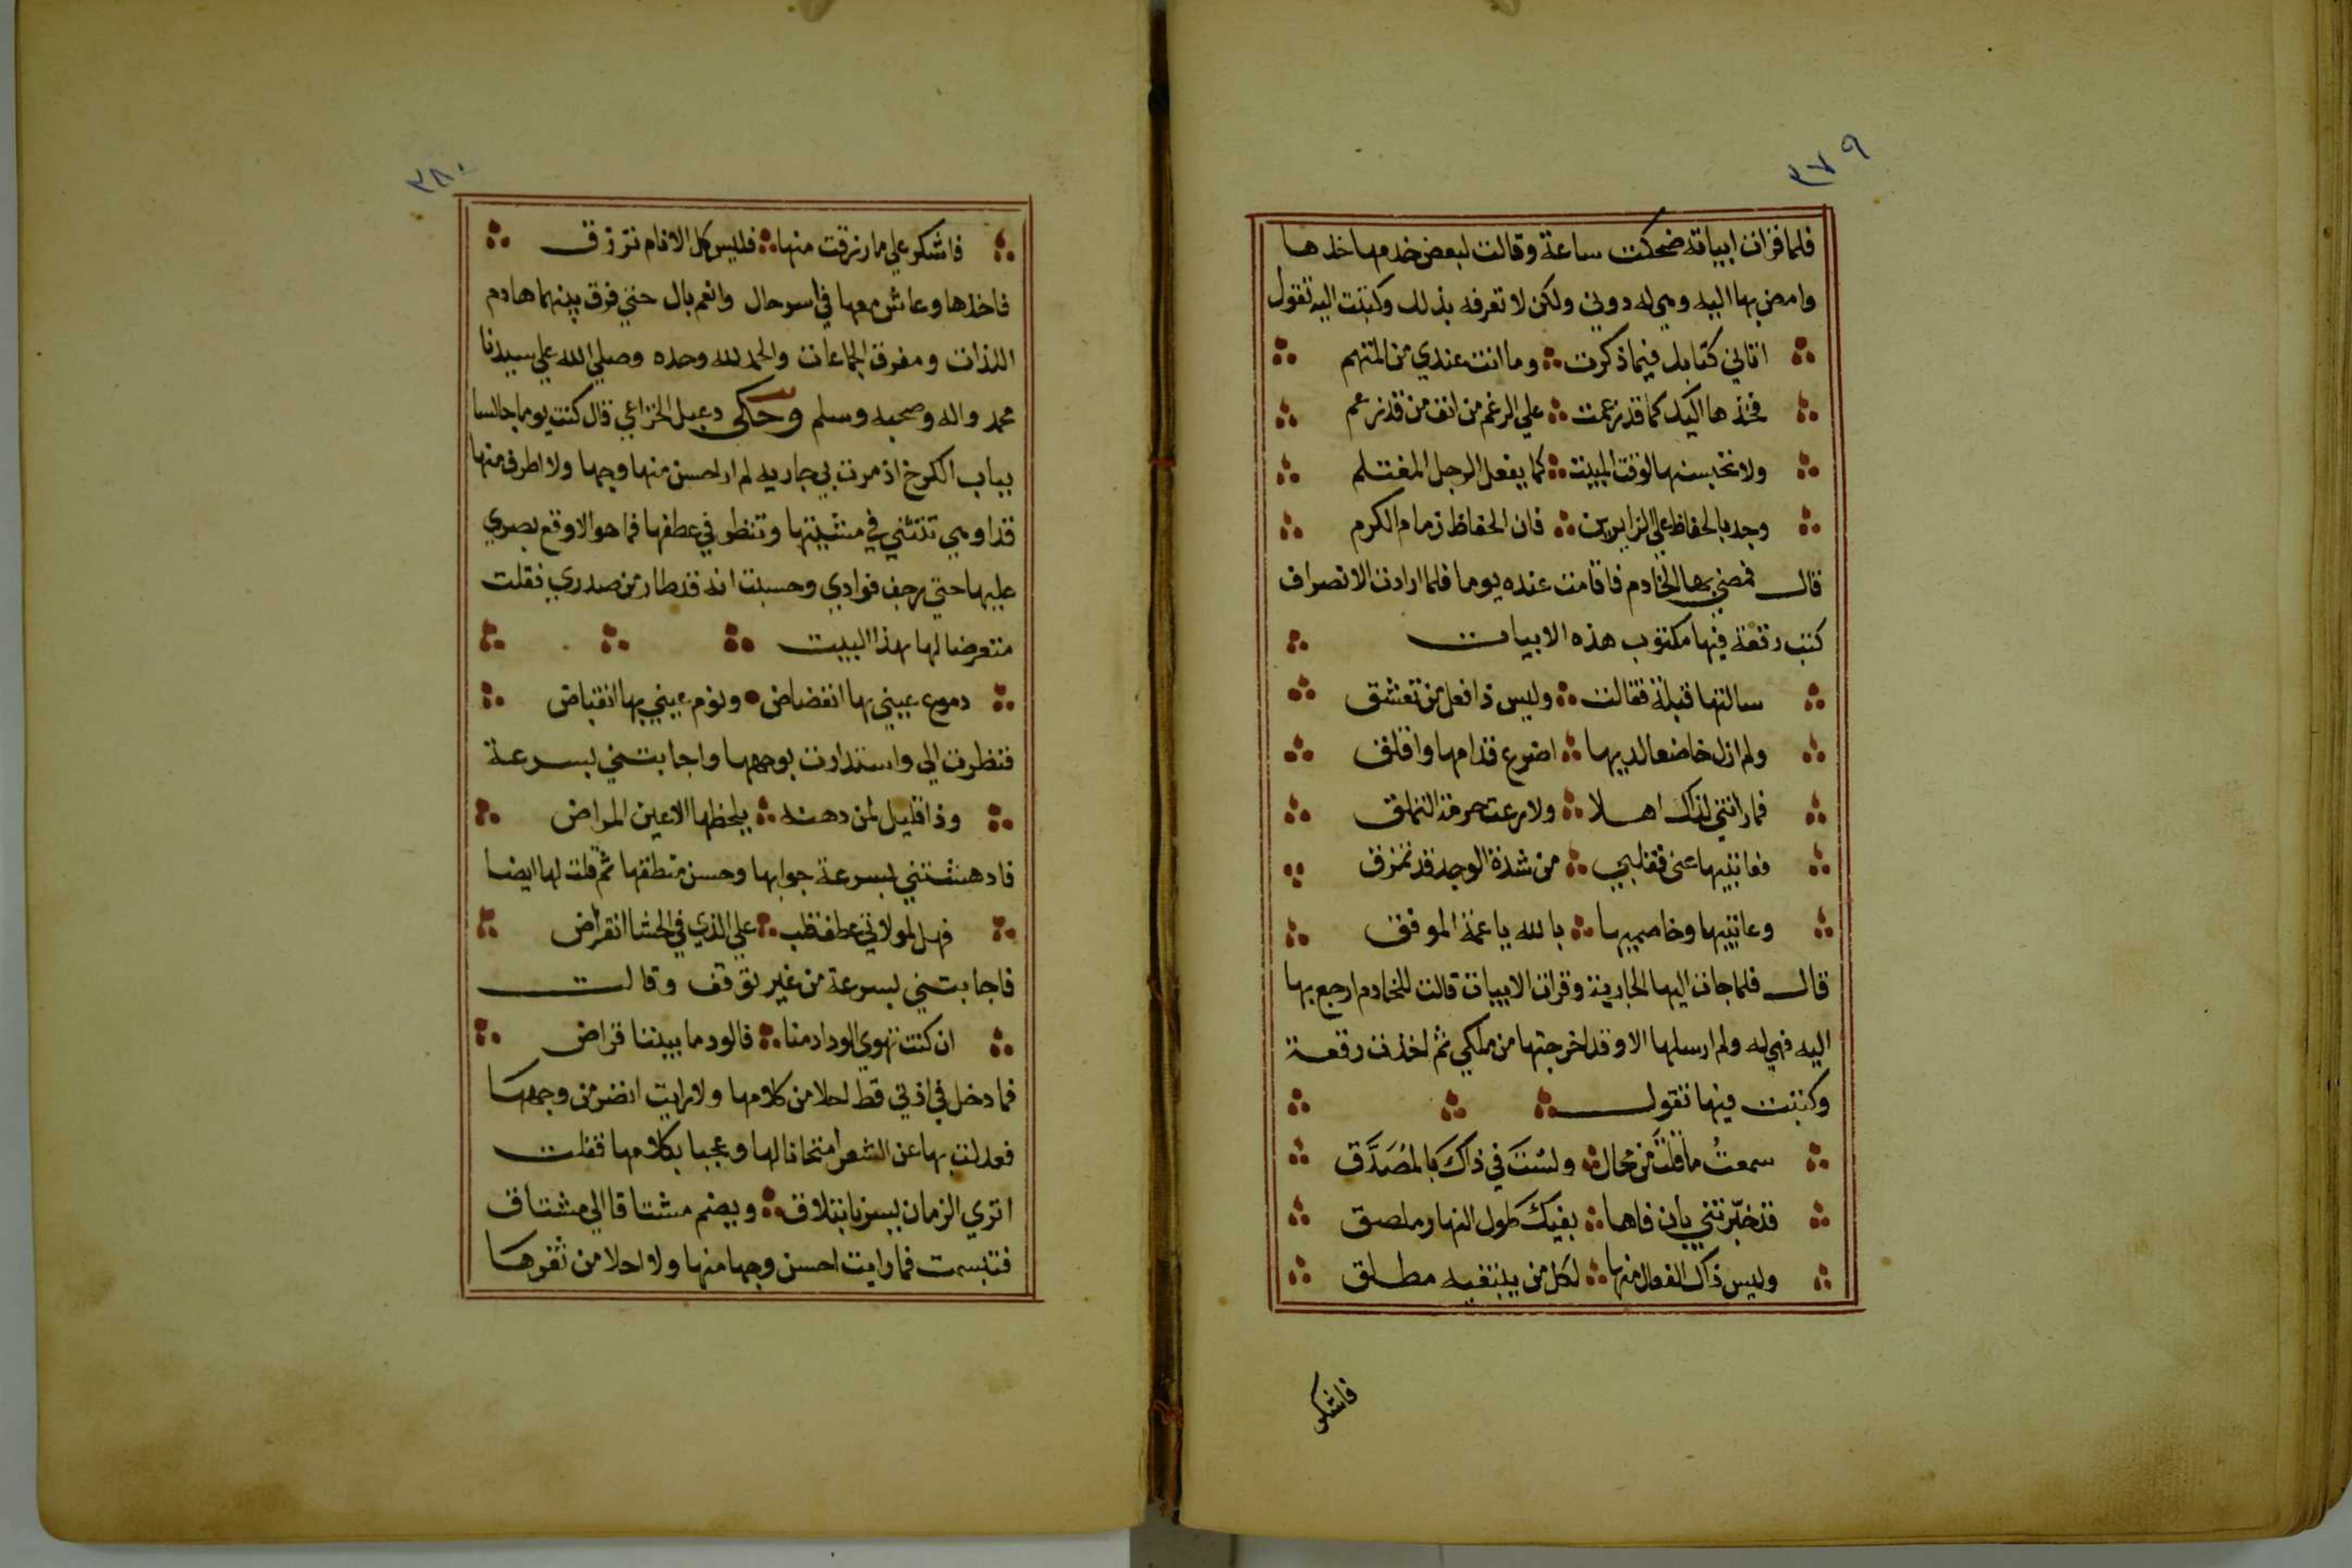 ٣٧٩
فلما قرات ابياته ضحكت ساعة وقالت لبعض خدمها خذها
وامض بها اليه وهي له دوني ولكن لا تعرفه بذلك وكتبت اليه تقول
اتاني كتابك فيما ذكرت وما انت عندي من المتهم
فخذها اليك كما قد زعمت علي الرغم من انف من قد زعم
ولا تحبسنها لوقت المبيت كما يفعل الرجل المغتلم
وجد بالحفاظ علي الزايرين فان الحفاظ زمام الكرم
قال فمضي بها الخادم فاقامت عنده يوما فلما ارادت الانصراف
كتب رقعة فيها مكتوب هذه الابيات
سالتها قبلة فقالت وليس ذا فعل من تعشق
ولم ازل خاضعا لديها اضرع قدامها واقلق
فما راتني لذاك اهلا ولا رعت حرمة التملق
فعاتبيها عني فقلبي من شدة الوجد قد تمزق
وعاتبيها وخاصميها بالله يا عمة الموفق
قال فلما جات اليها الجارية وقرات الابيات قالت للخادم ارجع بها
اليه فهي له ولم ارسلها الا وقد اخرجتها من ملكي ثم اخذت رقعة
وكتبت فيها تقول
سمعتُ ما قلتَ من محال ولستَ في ذاكَ بالمُصَدَّق
قد خبّرتني بان فاها بفيكَ طول النهار ملصق
وليس ذاك الفعال منها لكل من يبتغيه مطلق
فاشكر
٣٨٠
فاشكر علي ما رزقت منها فليس كل الانام ترزق
فاخذها وعاش معها في اسر حال وانعم بال حتي فرق بينهما هادم
اللذات ومفرق الجماعات والحمد لله وحده وصلي الله علي سيدنا
محمد واله وصحبه وسلم وحكى دعبل الخزاعي قال كنت يوما جالسا
بباب الكرخ اذ مرت بي جاريه لم ار احسن منها وجها ولا اطرف منها
قدا وهي تتثني في مشيتها وتنظر في عطفها فما هو الا وقع بصري
عليها حتي رجف فوادي وحسبت انه قد طار من صدري فقلت
متعرضا لها بهذا البيت
دموع عيني بها انفضاض ونوم عيني بها انقباض
فنظرت الي واستدارت بوجهها واجابتني بسرعة
وذا قليل لمن دهته بلحظها الاعين المراض
فادهشتني بسرعة جوابها وحسن منطقها ثم قلت لها ايضا
فهل لمولاتي عطف قلب علي الذي في الحشا انقراض
فاجابتني بسرعة من غير توقف وقالت
ان كنت تهوي الوداد منا فالود ما بيننا قراض
فما دخل في اذني قط احلا من كلامها ولا رايت انضر من وجهها
فعدلت بها عن الشعر امتحانا لها وعجبا بكلامها فقلت
اتري الزمان يسرنا بتلاق ويضم مشتاقا الي مشتاق
فتبسمت فما رايت احسن وجها منها ولا احلا من ثغرها